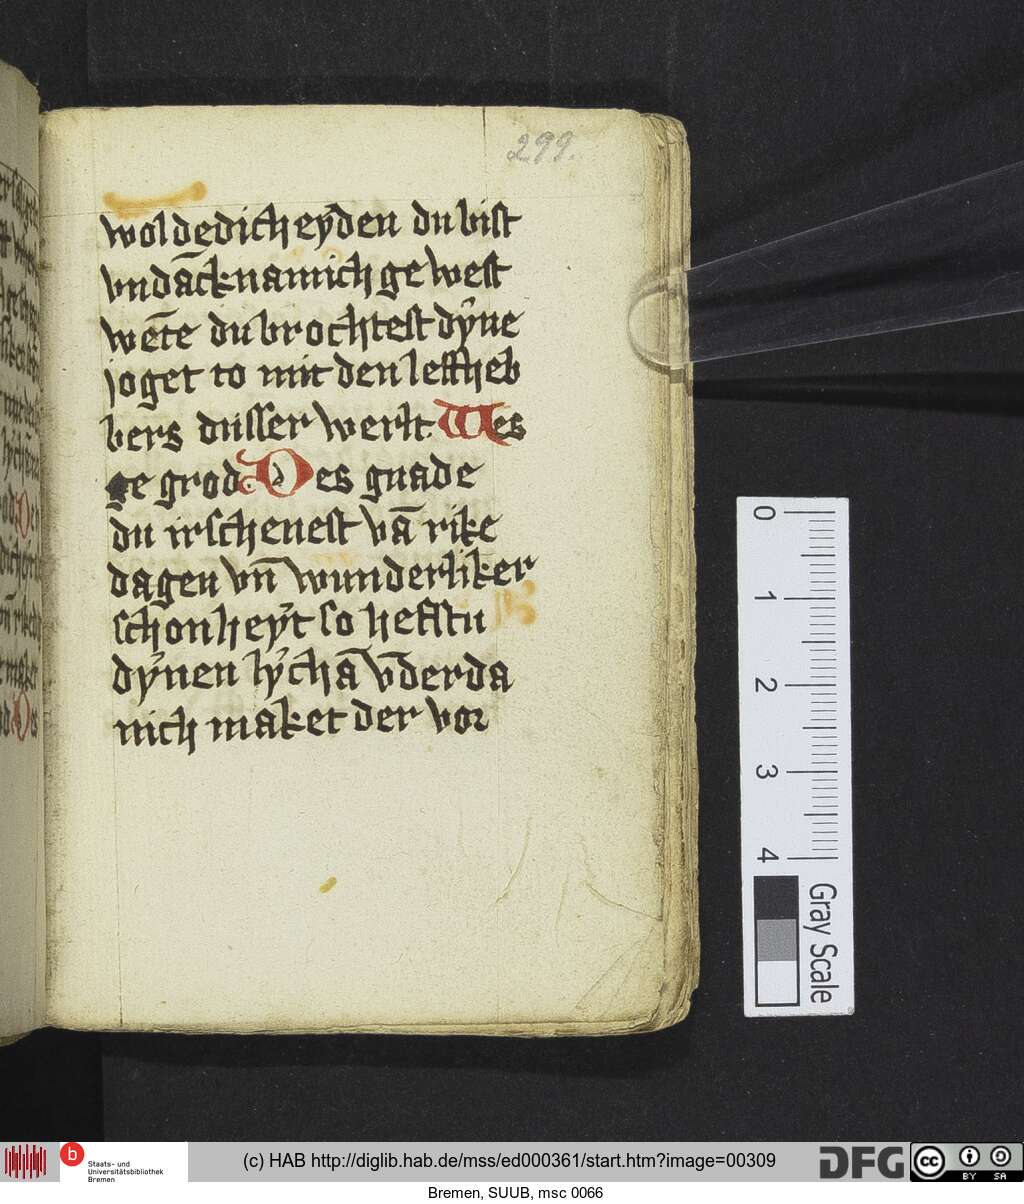 299.
woldedicheyden du bist
vndācknamich ge west
wēte du brochtest dyne
joget to mit den leffheb
bers dusser werlt. Wes
ge grod. Des gnade
du irschenest vā rike
dagen vn̄ wunderliker
schonheyt so hefstu
dynen lychā v̄derda
nich maket der vor
0
1
2
3
4
Gray Scale
b Staats- und
Universitätsbibliothek
Bremen
(c) HAB http://diglib.hab.de/mss/ed000361/start.htm?image=00309
DFG
cc BY SA
Bremen, SUUB, msc 0066